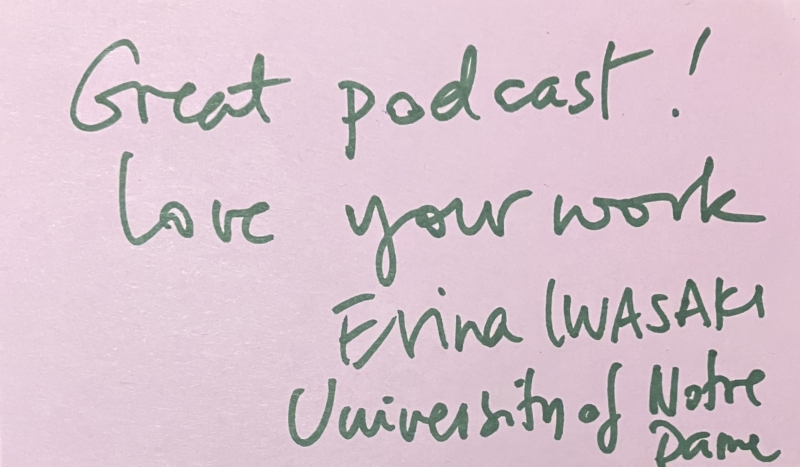 Great podcast!
Love your work
Erina IWASAKI
University of Notre
Dame